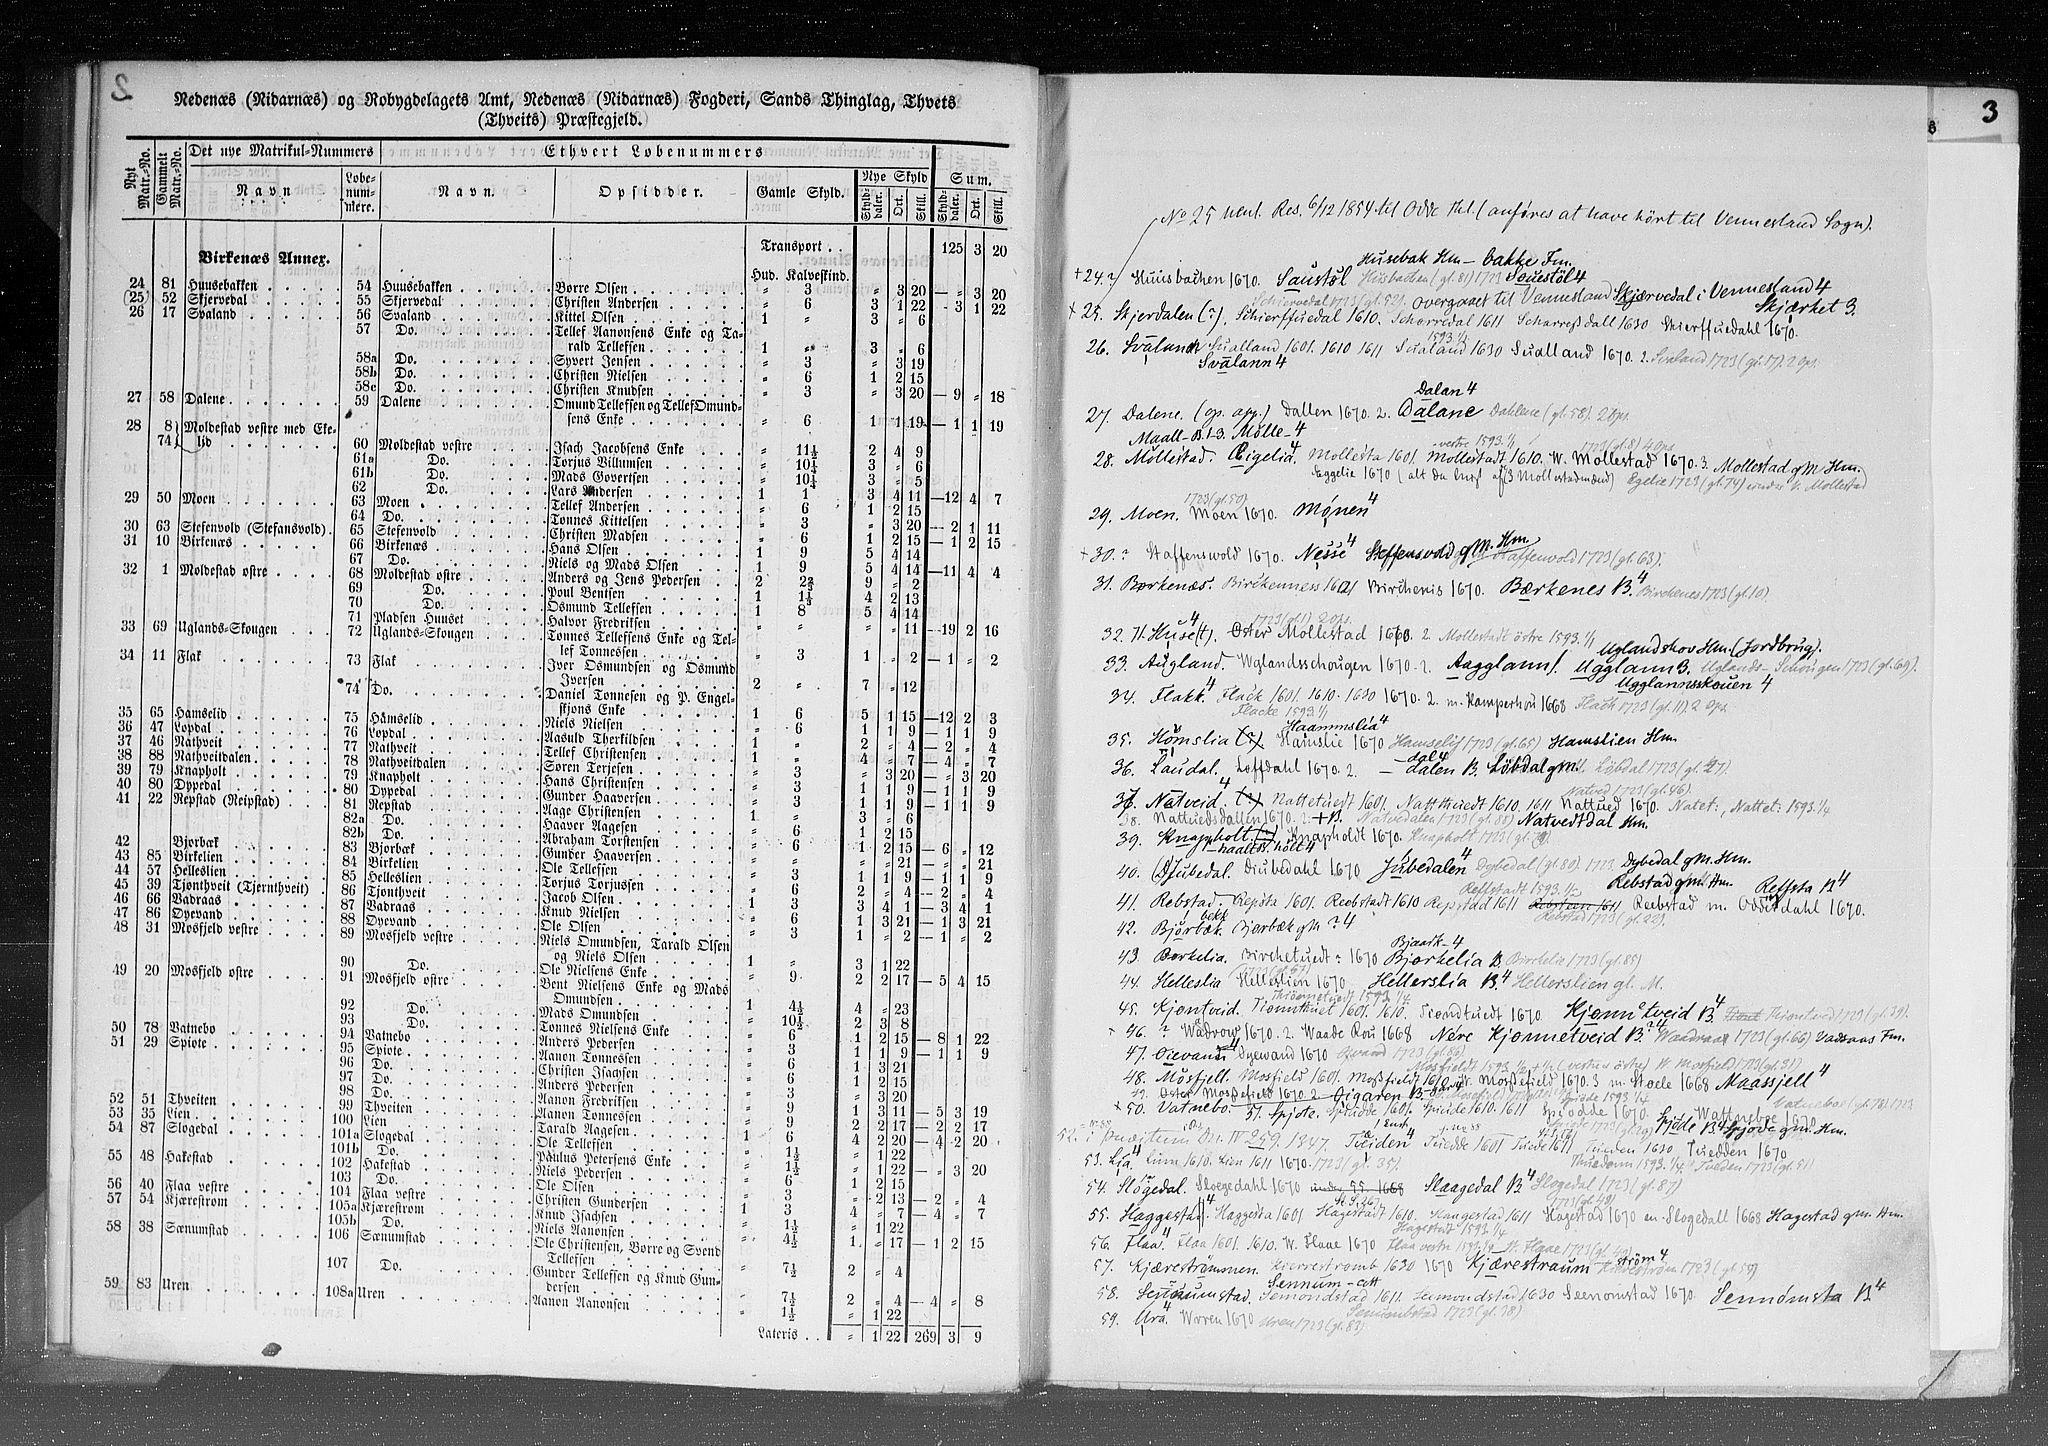 2
Nedenæs (Nidarnæs) og Robygdelagets Amt, Nedenæs (Nidarnæs) Fogderi, Sands Thinglag, Thvets
(Thveits) Præstegjeld.
Nyt Matr.-No. Gammelt Matr.-No. Det nye Matrikul-Nummers Ethvert Løbenummers
Navn Løbe-nummere. Navn. Opsidder. Gamle Skyld. Nye Skyld Sum.
Skylddaler. Ort. Skill. Skylddaler. Ort. Skill.
Transport . . 125 3 20
Birkenæs Annex. Hud. Kalveskind.
24 81 Huusebakken 54 Huusebakken Børre Olsen „ 3 „ 3 20 — „ 3 20
(25) 52 Skjervedal 55 Skjervedal Christen Andersen „ 6 3 1 22 — 3 1 22
26 17 Svaland 56 Svaland Kittel Olsen 1 „ 3 „ 6
57 Do. Tellef Aanonsens Enke og Ta-
rald Tellefsen 1 „ 3 „ 6
58a Do. Syvert Jensen „ 3 „ 3 19
58b Do. Christen Nielsen „ 6 1 2 15
58c Do. Christen Knudsen „ 3 „ 3 20 — 9 „ 18
27 58 Dalene 59 Dalene Omund Tellefsen og Tellef Omund-
sens Enke „ 6 1 1 19 — 1 1 19
28 8 Moldestad vestre med Eke-
74 lid 60 Moldestad vestre Isach Jacobsens Enke „ 11½ 2 4 9
61a Do. Torjus Villumsen „ 10¼ 3 „ 6
61b Do. Mads Govertsen „ 10¼ 3 „ 5
62 Do. Lars Andersen 1 1 3 4 11 — 12 4 7
29 50 Moen 63 Moen Tellef Andersen „ 6 1 2 15
64 Do. Tønnes Kittelsen „ 3 „ 3 20 — 2 1 11
30 63 Stefenvold (Stefansvold) 65 Stefenvold Christen Madsen „ 6 1 2 15 — 1 2 15
31 10 Birkenæs 66 Birkenæs Hans Olsen 1 9 5 4 14
67 Do. Niels og Mads Olsen 1 9 5 4 14 — 11 4 4
32 1 Moldestad østre 68 Moldestad østre Anders og Jens Pedersen 2 2⅔ 9 „ 2
69 Do. Poul Bentsen 1 1⅓ 4 2 13
70 Do. Osmund Tellefsen 1 8 5 4 14
71 Pladsen Huuset Halvor Fredriksen „ „ „ „ 11 — 19 2 16
33 69 Uglands-Skougen 72 Uglands-Skougen Tønnes Tellefsens Enke og Tel-
lef Tønnessen „ 3 1 „ 2 — 1 „ 2
34 11 Flak 73 Flak Iver Osmundsen og Osmund
Iversen 2 „ 7 „ 12
74 Do. Daniel Tønnesen og P. Engel-
skjøns Enke 1 6 5 1 15 — 12 2 3
35 65 Hamselid 75 Håmselid Niels Nielsen „ 6 1 1 9 — 1 1 9
36 47 Løpdal 76 Løpdal Aasuld Therkildsen 1 „ 2 „ 4 — 2 „ 4
37 46 Nathveit 77 Nathveit Tellef Christensen 1 „ 4 „ 7 — 4 „ 7
38 88 Nathveitdalen 78 Nathveitdalen Søren Terjesen „ 3 „ 3 20 — „ 3 20
39 79 Knapholt 79 Knapholt Hans Christensen „ 3 1 1 9 — 1 1 9
40 80 Dypedal 80 Dypedal Gunder Haaversen „ 3 1 1 9 — 1 1 9
41 22 Repstad (Reipstad) 81 Repstad Aage Christensen 1 „ 3 „ 6
82a Do. Haaver Aagesen „ 6 1 2 15
82b Do. Abraham Torstensen „ 6 1 2 15 — 6 „ 12
42 Bjorbæk 83 Bjorbæk Gunder Haaversen „ „ „ „ 21 — „ „ 21
43 85 Birkelien 84 Birkelien Ole Tellefsen „ 3 1 1 9 — 1 1 9
44 57 Helleslien 85 Helleslien Torjus Torjussen „ 6 2 „ 4 — 2 „ 4
45 39 Tjønthveit (Tjernthveit) 86 Tjonthveit Jacob Olsen 1 3 3 4 1 — 3 4 1
46 66 Vadraas 87 Vadraas Knud Nielsen „ 6 1 3 21 — 1 3 21
47 86 Dyevand 88 Dyevand Ole Olsen „ 3 1 „ 2 — 1 „ 2
48 31 Mosfjeld vestre 89 Mosfjeld vestre Niels Omundsen, Tarald Olsen
og Niels Olsen 1 „ 3 1 22
90 Do. Ole Nielsens Enke „ 9 2 2 17 — 5 4 15
49 20 Mosfjeld østre 91 Mosfjeld østre Bent Nielsens Enke og Mads
Omundsen 1 4½ 4 „ 23
92 Do. Mads Omundsen „ 10½ 2 3 8
93 Do. Tønnes Nielsens Enke „ 6 1 2 15 — 8 1 22
50 78 Vatnebo 94 Vatnebo Anders Pedersen „ 3 1 1 9 — 1 1 9
51 29 Spiote 95 Spiote Aanon Tønnessen „ 6 1 3 21
96 Do. Christen Isachsen „ 6 1 2 15
97 Do. Anders Pedersen „ 3 „ 3 20
98 Do. Aanon Fredriksen „ 9 1 3 11 — 5 3 19
52 51 Thveiten 99 Thveiten Aanon Tønnessen „ 9 2 2 17 — 2 2 17
53 35 Lien 100 Lien Tarald Aagesen 1 6 4 2 20 — 4 2 20
54 87 Slogedal 101a Slogedal Ole Tellefsen „ 1½ „ 1 22
101b Do. Paulus Petersens Enke „ 1½ „ 1 22 — „ 3 20
55 48 Hakestad 102 Hakestad Niels Pedersen „ 6 1 2 15
103 Do. Ole Olsen „ 3 „ 2 13 — 2 „ 4
56 40 Flaa vestre 104 Flaa vestre Christen Gundersen 1 3 4 „ 7 — 4 „ 7
57 54 Kjærestrøm 105a Kjærestrøm Knud Isachsen „ 1½ „ 1 22
105b Do. Niels Aanonsen „ 4½ 1 „ 17 — 1 2 15
58 38 Sænumstad 106 Sænumstad Ole Christensen, Børre og Svend
Tellefsen „ 7½ 2 „ 4
107 Do. Gunder Tellefsen og Knud Gun-
dersen „ 7½ 2 „ 4 — 4 „ 8
59 83 Uren 108a Uren Aanon Aanonsen „ 1½ „ 1 22
Lateris . . „ 1 22 269 3 9
3
No 25 ved Res. 6/12 1854 til Odde Thl. (anføres at have hørt til Vennesland Sogn).
Husebak Hm — bakke Fm.
+ 24. ? Huusbachen 1670. Saustøl Husbachen (gl. 81) 1723 Souestöl 4
Schiervedal 1723 (gl. 52). overgaaet til Vennesland Skjærvedal i Vennesland 4
+ 25. Skjerdalen (?). Schierffuedal 1610. Schorredal 1611 Scharreßdall 1630 Skierffuedahl 1670. Skjærket 3.
1593.1/1
26. Svåland Sualland 1601. 1610 1611 Sualand 1630 Sualland 1670. 2. Svaland 1723 (gl. 17). 2 Ops.
Svålann 4
Dalan 4
27. Dalene. (op. app.) Dallen 1670. 2. Dalane Dahlene (gl. 58). 2 Ops.
Maall- B. 1-3. Mölle- 4
vestre 1593.1/1 1723 (gl. 8) 4 Ops.
28. Møllestad. Eigelia. 4 Mollesta 1601. Mollestadt 1610. W. Mollestad 1670. 3. Mollestad gM. Hm.
Eggelie 1670 (alt da brugt af 3 Mollestadmænd) Egelie 1723 (gl. 74) under V. Mollestad
1723 (gl. 50)
29. Moen. Moen 1670. Mønen 4
+ 30. ? Staffenswold 1670. Nesse 4 Steffensvold gM. Hm. Staffenvold 1723 (gl. 63).
31. Børkenæs. Birckenness 1601 Birchenis 1670. Bærkenes B. 4 Birchenes 1723 (gl. 10)
1723 (gl. 1) 2 ops.
32. H. Huse(t). 4 Oster Mollestad 1670. 2 Mollestadt östre 1593.1/1
Uglandskov Hm. (Jordbrug).
33. Augland. Wglandsschougen 1670. 2. Aagglann 1. Ugglann B. Uglands-Schougen 1723 (gl. 69).
Ugglannsskouen 4
34. Flakk 4 Flack 1601. 1610. 1630 1670. 2. m. Kamperhou 1668 Flach 1723 (gl. 11) 2 Ops.
Flacke 1593.1/1
Haammslia 4
35. Hømslia (?) Hamslie 1670 Hamselif 1723 (gl. 65) Hamslien Hm.
dal 4
36. Laudal. Loffdahl 1670. 2. — dalen B. Løbdal gM. Löbdal 1723 (gl. 27).
Natved 1723 (gl. 46).
37. Natveid. 4 (?) Nattetuedt 1601. Natthtuedt 1610. 1611 Nattued 1670. Natet:, Nattet: 1593.1/4
38. Nattuedsdallen 1670. 2. + B. Natvedalen 1723 (gl. 88) Natvedtdal Hm.
39. Knappholt (?) Knapholdt 1670. Knapholt 1723
haalt 3. hölt 4
40. Djubedal. Diubedahl 1670. Jubedalen 4 Dybedal (gl. 80). 1723 Dybedal gM. Hm.
Reffstadt 1593.1/2 Rebstad gM. Hm. Reffsta B 4
41. Rebstad. Repsta 1601. Reebstadt 1610 Repstad 1611 Reebstad m. Odderdahl 1670.
Rebstad 1723 (gl. 22).
bekk
42. Bjørbæk. Bjerbæk gM ? 4
Bjaark- 4
43. Børkelia. Birchetuedt ? 1670 Bjørkelia B. Birchelia 1723 (gl. 85)
1723 (gl. 57)
44. Helleslia Helleslien 1670 Hellerslia B. 4 Hellerslien gl. M.
Thiömetuedt 1593.1/4
45. Kjøntveid. Tiomthuet 1601. 1610. Tiomdtuedt 1670. Kjønntveid B. 4 Thiontved 1723 (gl. 39).
+ 46. ? Wadrow 1670. 2. Waade Rou 1668 Nere Kjønnetveid B. ? 4 Waadraas 1723 (gl. 66) Vadraas Fm.
47. Dievann 4 Dyewand 1670 Dyvand 1723 (gl. 86)
Mosfjeldt 1593 1/2 + 1/1 (vestre & östre) W. Mosfield 1723 (gl. 31)
48. Mosfjell. Mosfield 1601. Moßfieldt 1610. W. Mosßefield 1670. 3 m. Stoele 1668 Maassjell 4
49. Oster Moßefield 1670. 2 Oigaren B.
Spiöde 1593 1/4 Vatneboe (gl. 78). 1723
+ 50. Vatnebo. 51. Spjote. Spiodde 1601. Spiode 1610. 1611 Spiodde 1670. Spjøde B. 4 Spjøde gM. Hm.
52. i Diplom. Dn. IV 259. 1347. Tueiden 4 Tuedde 1601 Tuede 1611 Tueden 1630 Tuedden 1670
Thuedenn 1593.1/4 Tueden 1723 (gl. 51)
53. Lia. 4 Lium 1610. Lien 1611 1670. 1723 (gl. 35).
54. Sløgedal. Sloegedahl 1670 under 55. 1668 Slaagedal B. 4 Slogedal 1723 (gl. 87)
1723 (gl. 48)
55. Haggestad 4. Haggesta 1601 Hagestadt 1610. Haugestad 1611 Hagestad 1670 en Slogedall 1668 Hagestad gM. Hm.
Hagestadt 1593.1/4
56. Flaa. 4 Flaa 1601. 1610. W. Flaae 1670 Flaa vestre 1593.1/4 W. Flaae 1723 (gl. 40)
57. Kjærestrømmen. Kierrestromb 1630 1670 Kjærestraum — strøm 4 Kierestrøm 1723 (gl. 54)
Sennum — ett
58. Seinumstad. Semondstad 1611. Semondstad 1630 Seenomstad 1670. Sennømsta B 4
Senumbstad 1723 (gl. 38)
59. Ura 4. Wrren 1670 Uren 1723 (gl. 83).